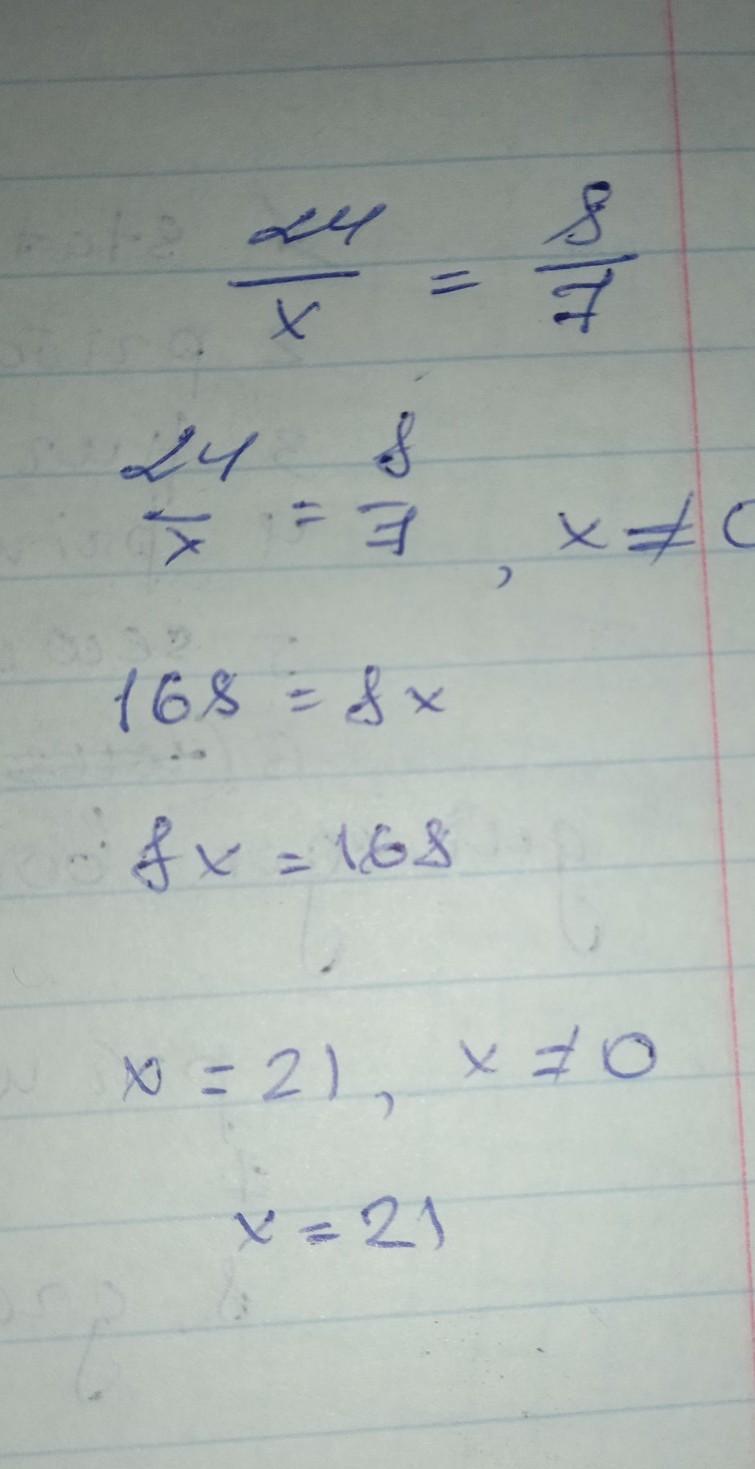 24/x = 8/7
24/x = 8/7, x ≠ 0
168 = 8x
8x = 168
x = 21, x ≠ 0
x = 21